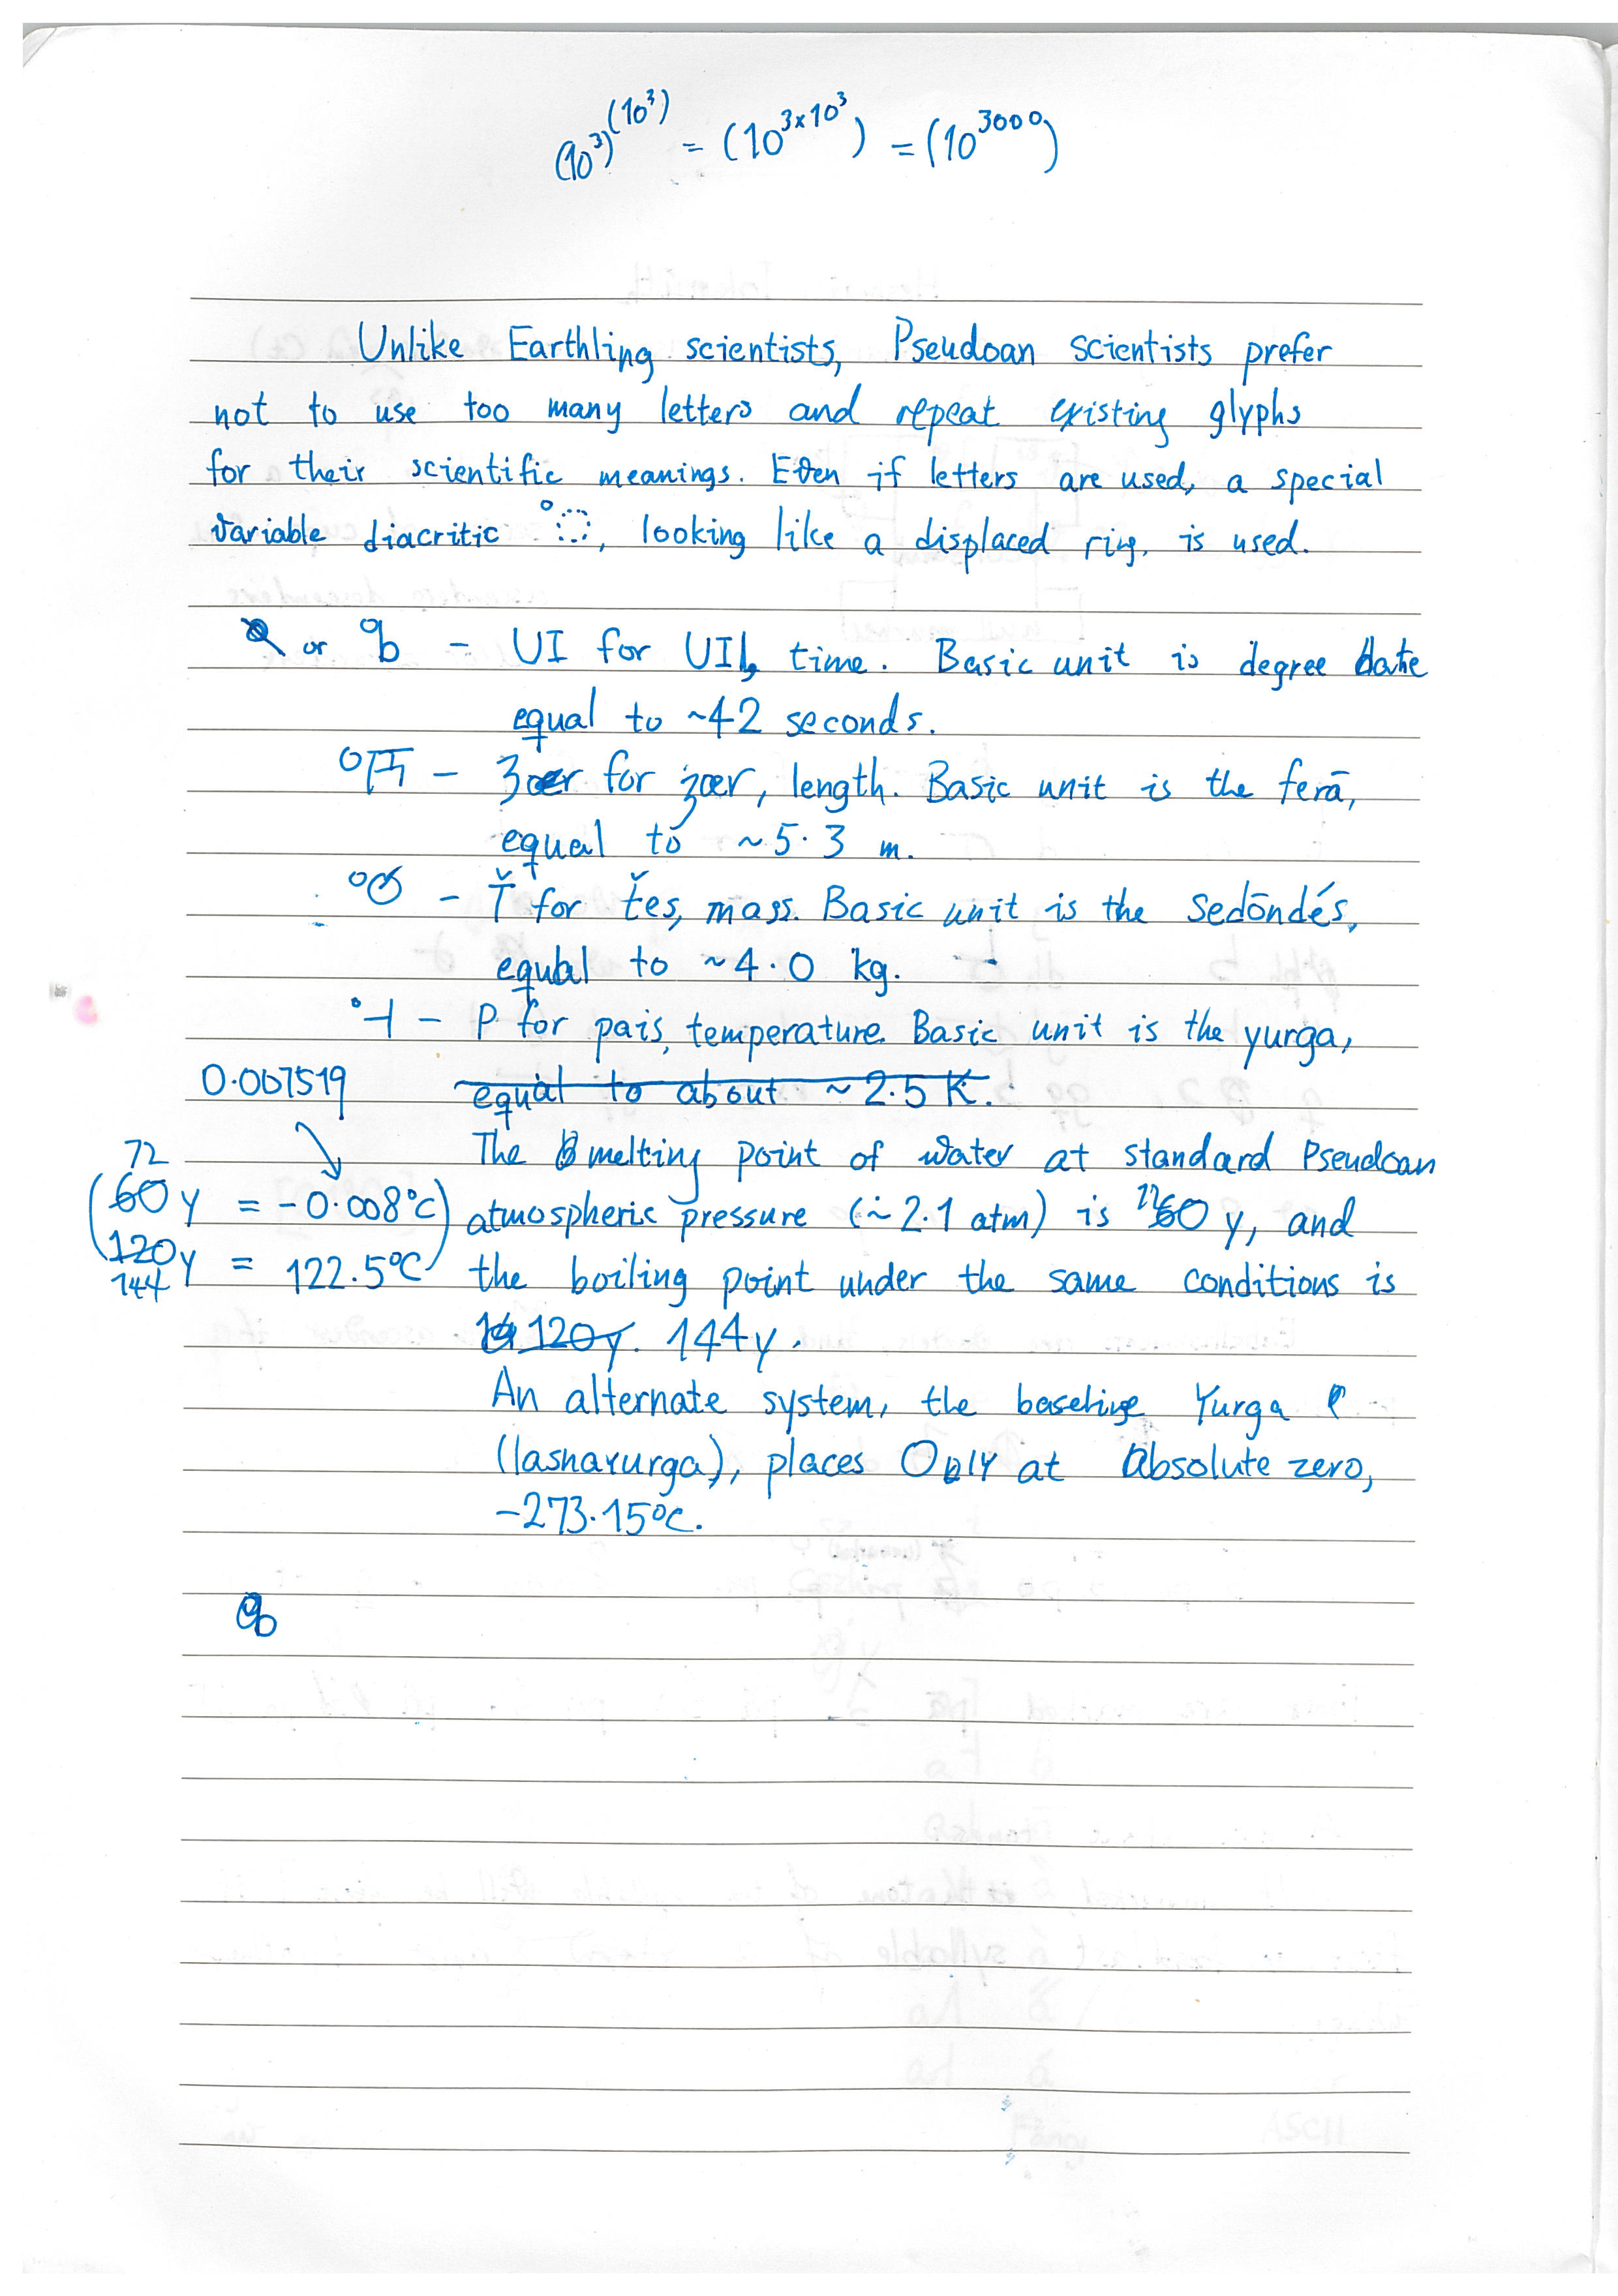 (10³)^(10³) = (10^(3×10³)) = (10^3000)
Unlike Earthling scientists, Pseudoan scientists prefer
not to use too many letters and repeat existing glyphs
for their scientific meanings. Even if letters are used, a special
variable diacritic °◌, looking like a displaced ring, is used.
or - UI for UI, time. Basic unit is degree date
equal to ~42 seconds.
- ʒœr for ʒœr, length. Basic unit is the ferā,
equal to ~5.3 m.
- Ť for ťes, mass. Basic unit is the Sedōndés,
equal to ~4.0 kg.
- P for pais, temperature. Basic unit is the yurga,
0.007519 equal to about ~2.5 K.
The melting point of water at standard Pseudoan
72
(60y = -0.008°C) atmospheric pressure (~2.1 atm) is 60 y, and
120y = 122.5°C the boiling point under the same conditions is
144
120y. 144y.
An alternate system, the baseline Yurga
(lashayurga), places 0 blY at absolute zero,
-273.15°C.